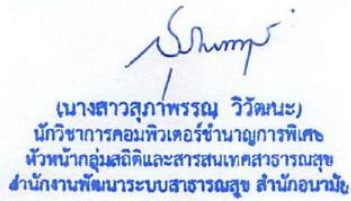 (นางสาวสุภาพรรณ วิวัฒนะ)
นักวิชาการคอมพิวเตอร์ชำนาญการพิเศษ
หัวหน้ากลุ่มสถิติและสารสนเทศสาธารณสุข
สำนักงานพัฒนาระบบสาธารณสุข สำนักอนามัย